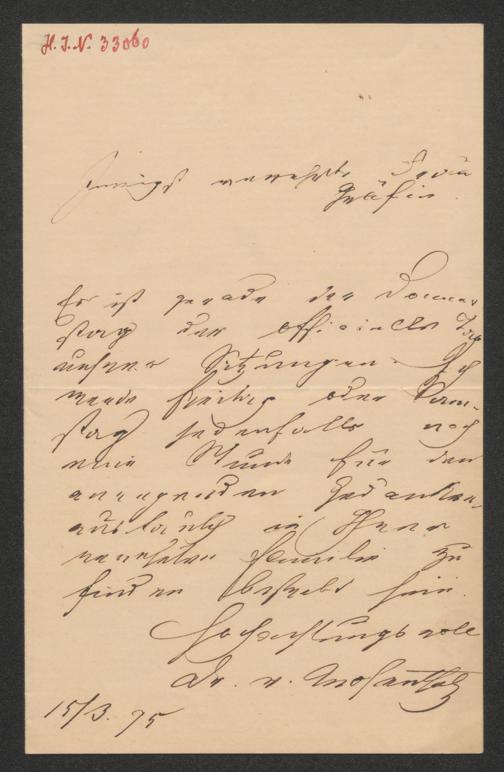 H. I. N. 33060
Innigst verehrte Frau
Gräfin.
Es ist gerade der Donner-
stag der officielle Tag
unserer Sitzungen. Ich
werde Freitag oder Sam-
stag jedenfalls noch
eine Stunde für den
anregenden Gedanken-
austausch in Ihrer
verehrten Familie zu
finden bestrebt sein.
Hochachtungsvoll
Dr. v.
15/3. 75